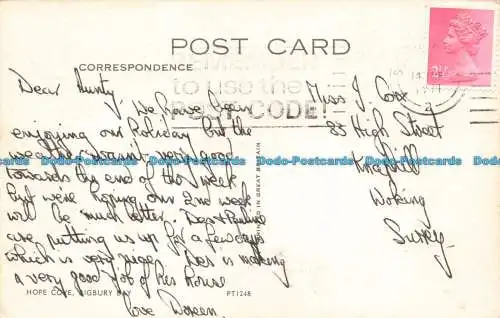 POST CARD
CORRESPONDENCE
REMEMBER
to use the
POST CODE!
2½
Dear Aunty,
We have been
enjoying our holiday but the
weather wasn't very good
towards the end of the week
but we're hoping our 2nd week
will be much better. Des & Pauline
are putting us up for a few days
which is very nice. Des is making
a very good job of his house
love Doreen.
Miss J. Cox
83 High Street
Knaphill
Woking
Surrey
PRINTED IN GREAT BRITAIN
HOPE COVE, BIGBURY BAY
PT1248
Dodo-Postcards Dodo-Postcards Dodo-Postcards Dodo-Postcards
Dodo-Postcards Dodo-Postcards Dodo-Postcards Dodo-Postcards